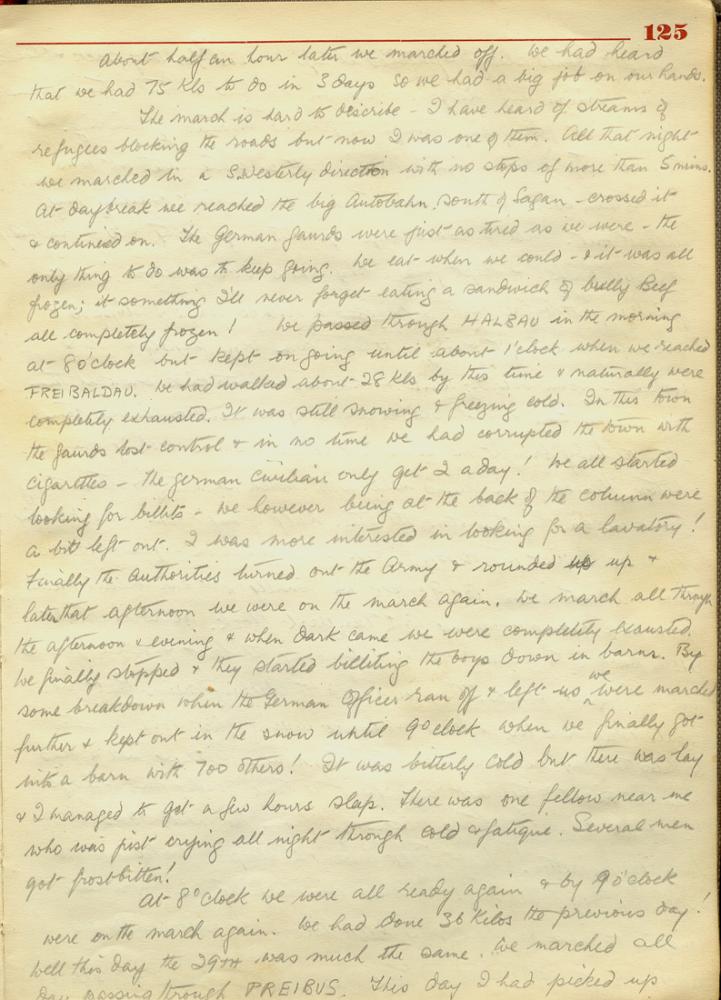 125
About half an hour later we marched off. We had heard
that we had 75 Kls to do in 3 days so we had a big job on our hands.
The march is hard to describe - I have heard of streams of
refugees blocking the roads but now I was one of them. All that night
we marched in a S.Westerly direction with no stops of more than 5 mins.
At daybreak we reached the big Autobahn, south of Sagan - crossed it
& continued on. The German gaurds were just as tired as we were - the
only thing to do was to keep going. We eat when we could - & it was all
frozen; it something I'll never forget eating a sandwich of bully Beef
all completely frozen! We passed through HALBAU in the morning
at 8 o'clock but kept on going until about 1'clock when we reached
FREIBALDAU. We had walked about 28 Kls by this time & naturally were
completely exhausted. It was still snowing & freezing cold. In this town
the gaurds lost control & in no time we had corrupted the town with
cigarettes - the german civilian only get 2 a day! We all started
looking for billits - we however being at the back of the column were
a bit left out. I was more interested in looking for a lavatory!
Finally the Authorities turned out the Army & rounded up up &
later that afternoon we were on the march again. We march all through
the afternoon & evening & when dark came we were completily exausted.
We finally stopped & they started billiting the boys down in barns. By
some breakdown when the German Officer ran off & left us we were marched
further & kept out in the snow until 9 o'clock when we finally got
into a barn with 700 others! It was bitterly cold but there was hay
& I managed to get a few hours sleep. There was one fellow near me
who was just crying all night through cold & fatigue. Several men
got frostbitten!
At 8 o'clock we were all ready again & by 9 o'clock
were on the march again. We had done 36 Kilos the previous day!
Well this day the 29TH was much the same. We marched all
day passing through PREIBUS. This day I had picked up